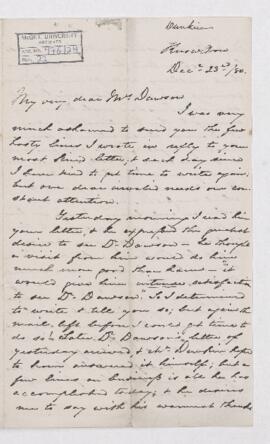 McGILL UNIVERSITY
ARCHIVES
ACC. NO.
REF.
Dunkin
Knowlton
Decr 23rd/80.
My very dear Mrs Dawson
I was very
much ashamed to send you the few
hasty lines I wrote in reply to your
most kind letter, & each day since
I have tried to get time to write again,
but our dear invalid needs our con-
stant attention.
Yesterday morning I read him
your letter, & he expressed the greatest
desire to see Dr Dawson – he thought
a visit from him would do him
much more good than harm – it
would give him intense satisfaction
to see Dr Dawson. So I determined
to write & tell you so; but again the
mail left before I could get time to
do so. Later Dr Dawson's letter of
yesterday arrived & Mr Dunkin hoped
to have answered it himself; but a
few lines on business is all he has
accomplished today; & he desires
me to say with his warmest thanks